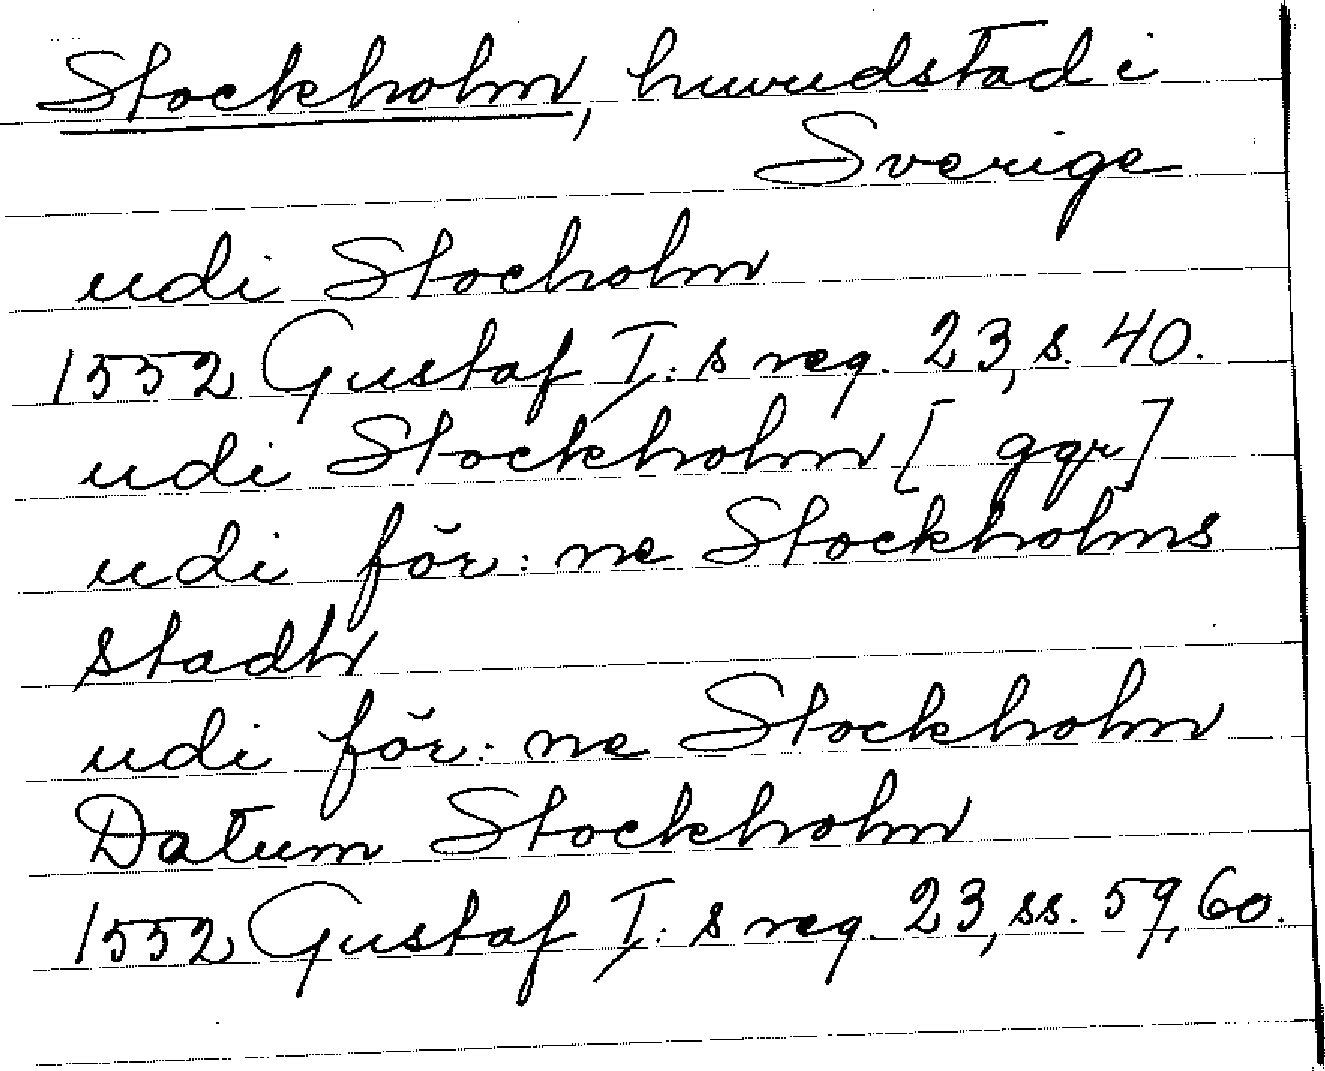 Stockholm, huvudstad i
Sverige
udi Stocholm
1552 Gustaf I: s reg. 23, s. 40.
udi Stockholm [ ggr]
udi för: ne Stockholms
stadh
udi för: ne Stockholm
Datum Stockholm
1552 Gustaf I: s reg. 23, ss. 59, 60.